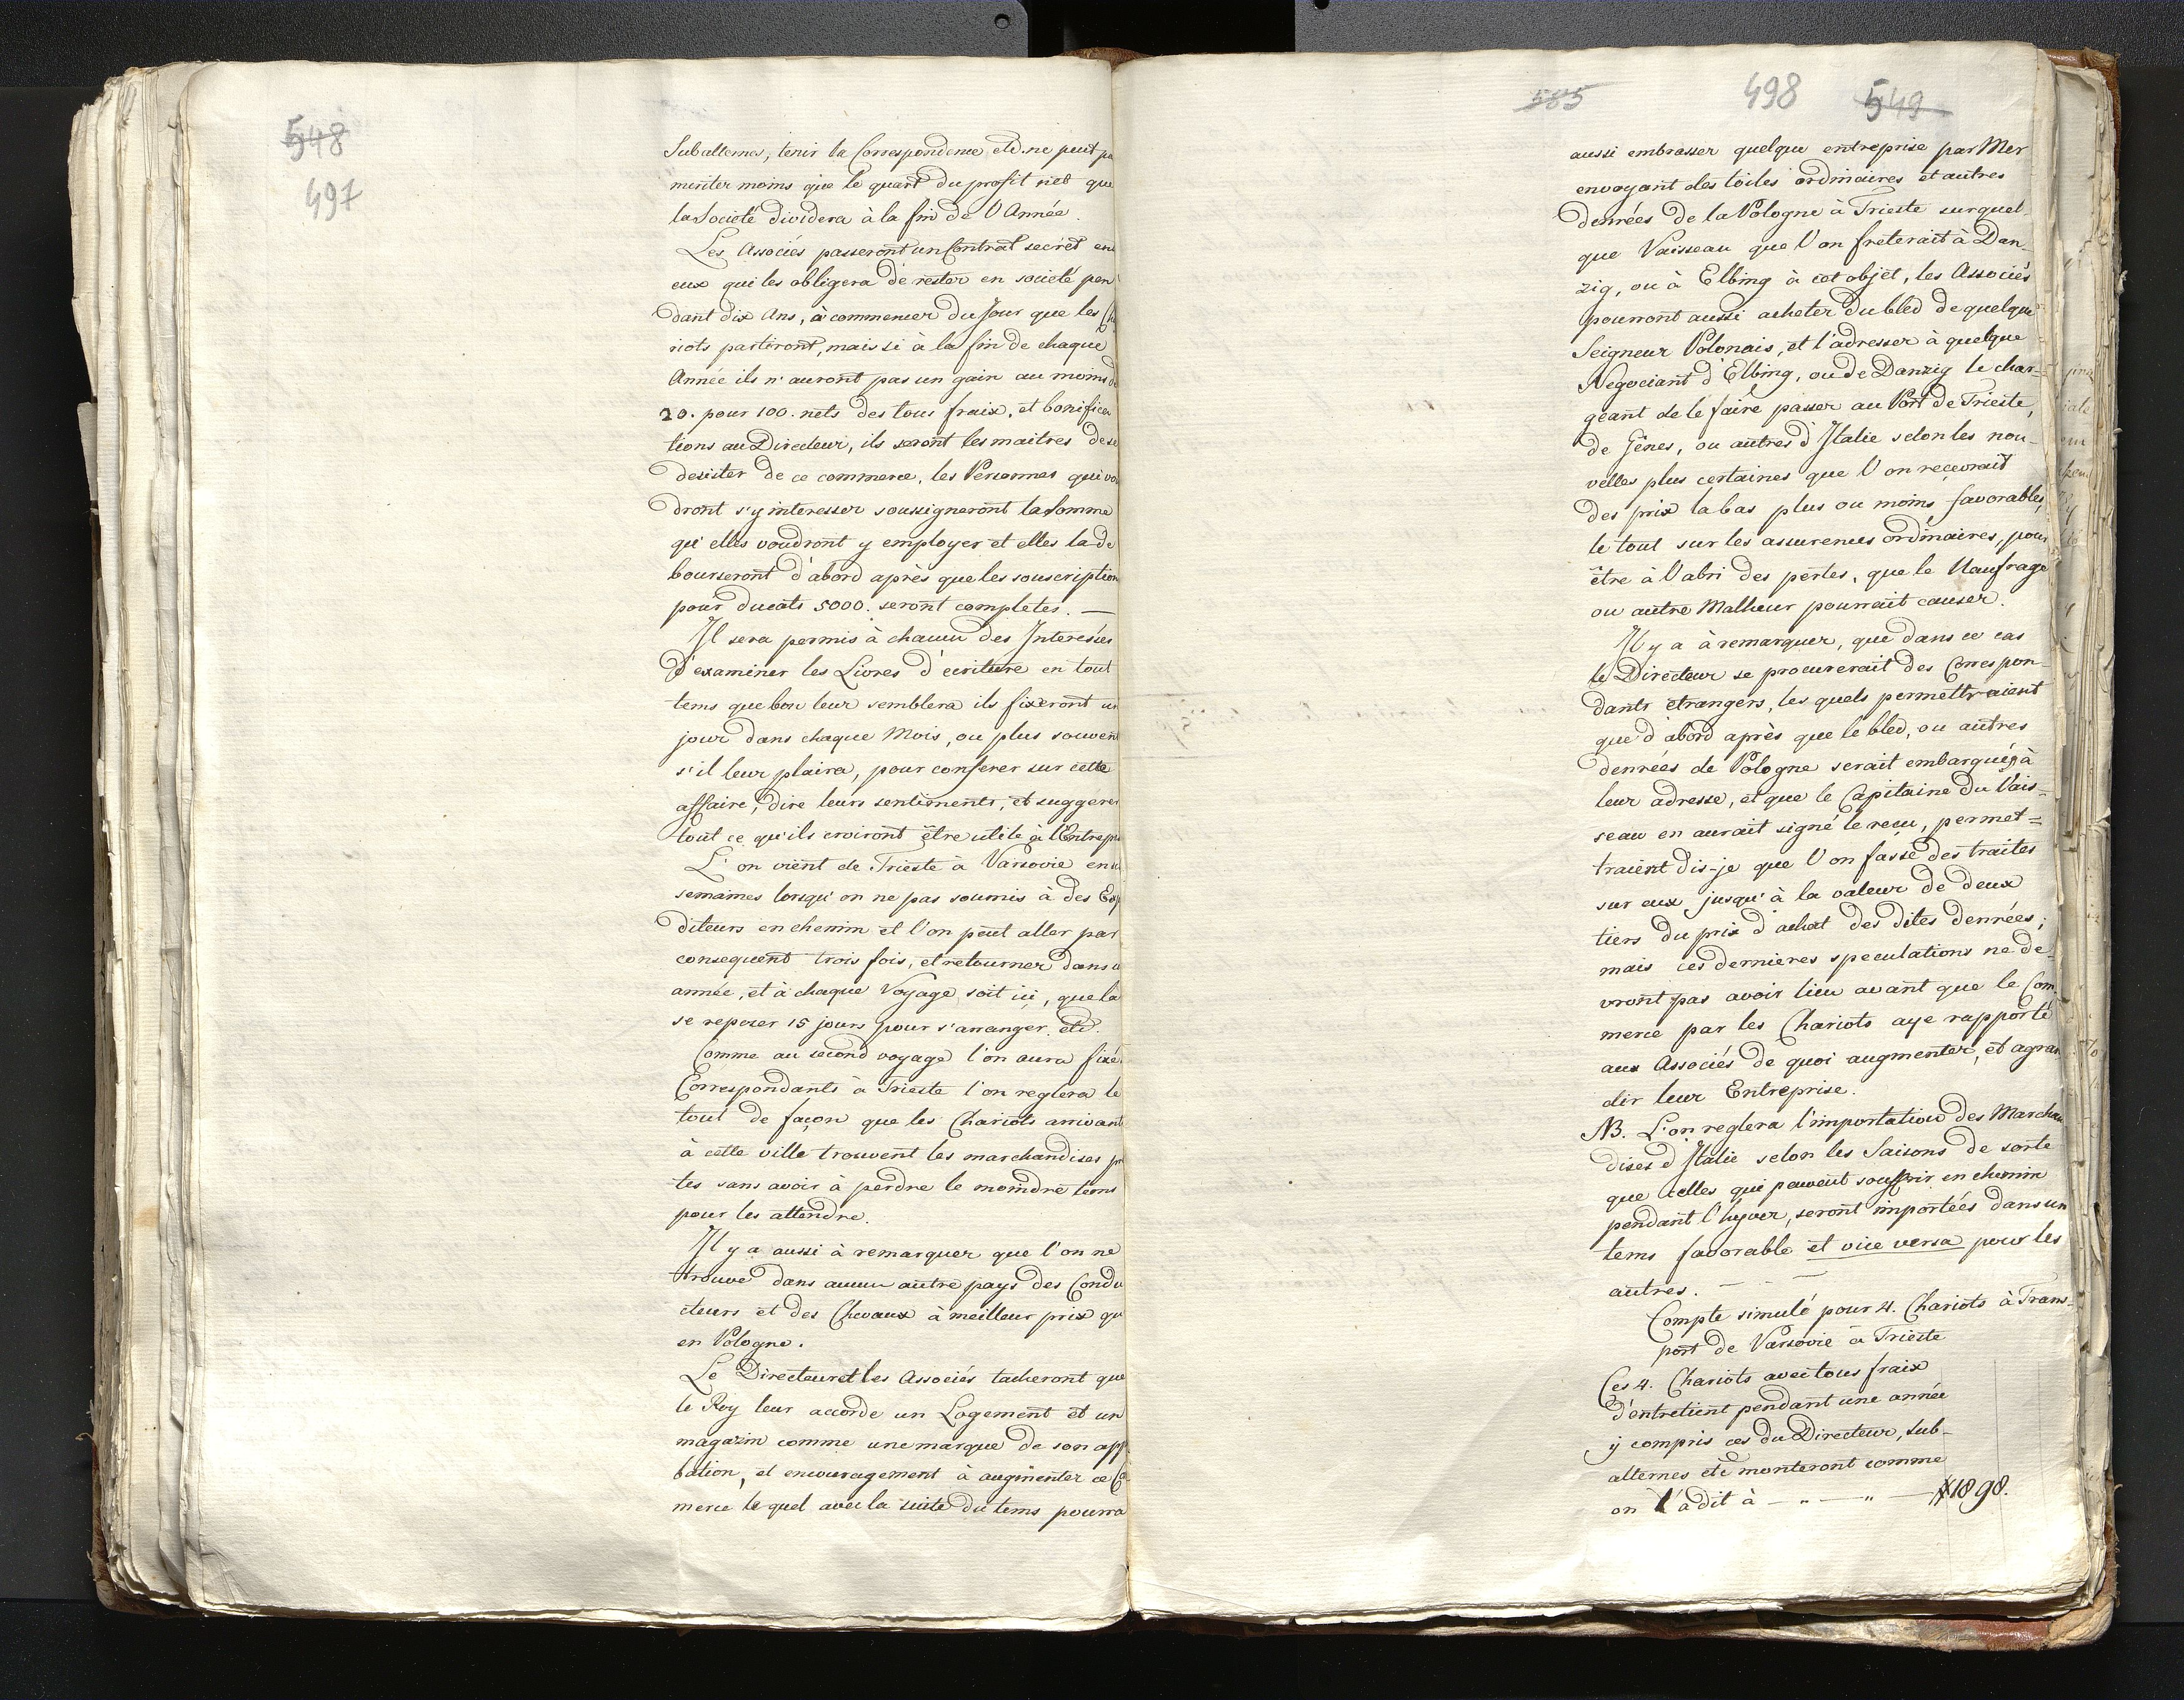 548
497
Subalternes, tenir la Correspondence etc. ne peut pa
meriter moins que le quart du profit net que
la Societé dividera à la fin de l'Année.
Les Associés passeront un Contrat secret en
eux qui les obligera de rester en societé pen
dant dix Ans, à commencer du Jour que les Ch
riots partiront, mais si à la fin de chaque
Année ils n'auront pas un gain au moins de
20. pour 100. nets des tous fraix, et bonifica
tions au Directeur, ils seront les maitres de se
desister de ce commerce, les Personnes qui vou
dront s'y interesser soussigneront la Somme
qu'elles voudront y employer et elles la de
bourseront d'abord après que les souscription
pour ducats 5000. seront completes. —
Il sera permis à chacun des Interessées
d'examiner les Livres d'ecriture en tout
tems que bon leur semblera ils fixeront un
jour dans chaque Mois, ou plus souvent
s'il leur plaira, pour conferer sur cette
affaire, dire leurs sentiments, et suggerer
tout ce qu'ils croiront être utile à l'Entrepri
L'on vient de Trieste à Varsovie en
semaines lorsqu'on ne pas soumis à des Exp
diteurs en chemin et l'on peut aller par
consequent trois fois, et retourner dans u
année, et à chaque Voyage soit ici, que là
se reposer 15 jours pour s'arranger etc.
Comme au second voyage l'on aura fixé
Correspondants à Trieste l'on reglera le
tout de façon que les Chariots arrivant
à cette ville trouvent les marchandises pr
tes sans avoir à perdre le moindre tems
pour les attendre.
Il y a aussi à remarquer que l'on ne
trouve dans aucun autre pays des Condu
cteurs et des Chevaux à meilleur prix qu
en Pologne.
Le Directeur et les Associés tacheront que
le Roy leur accorde un Logement et un
magazin comme une marque de son app
bation, et encouragement à augmenter ce Co
merce le quel avec la suite du tems pourra
585 498 549
aussi embrasser quelque entreprise par Mer
envoyant des toiles ordinaires et autres
denrées de la Pologne à Trieste sur quel
que Vaisseau que l'on freterait à Dan
zig, ou à Elbing à cet objet, les Associés
pourront aussi acheter du bled de quelque
Seigneur Polonais, et l'adresser à quelque
Negociant d'Elbing, ou de Danzig le char=
geant de le faire passer au Port de Trieste,
de Gênes, ou autres d'Italie selon les nou-
velles plus certaines que l'on reçevrait
des prix la bas plus ou moins favorables,
le tout sur les assurences ordinaires, pour
être à l'abri des pertes, que le Naufrage
ou autre Malheur pourrait causer.
Il y a à remarquer, que dans ce cas
le Directeur se procurerait des Correspon-
dants etrangers, les quels permettraient
que d'abord après que le bled, ou autres
denrées de Pologne serait embarquées à
leur adresse, et que le Capitaine du Vais=
seau en aurait signé le reçu, permet=
traient dis-je que l'on fasse des traites
sur eux jusqu'à la valeur de deux
tiers du prix d'achat des dites denrées;
mais ces dernieres speculations ne de-
vront pas avoir lieu avant que le Com
merce par les Chariots aye rapporté
aux Associés de quoi augmenter, et agran
dir leur Entreprise.
NB. L'on reglera l'importation des Marchan
dises d'Italie selon les Saisons de sorte
que celles qui peuvent souffrir en chemin
pendant l'hyver, seront importées dans un
tems favorable et vice versa pour les
autres. — - —
Compte simulé pour 4. Chariots à Trans=
port de Varsovie à Trieste
Ces 4. Chariots avec tous fraix
d'entretient pendant une année
y compris ces du Directeur, sub-
alternes etc monteront comme
on l'a dit à — " — " — #1898.